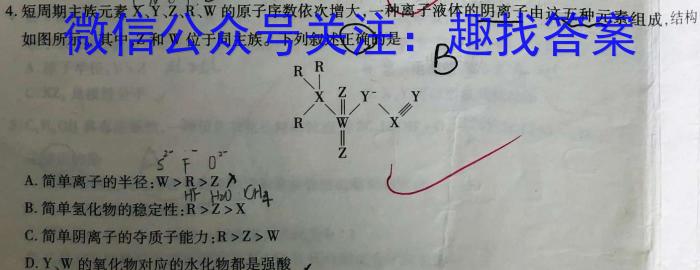 4. 短周期主族元素 X、Y、Z、R、W 的原子序数依次增大,一种离子液体的阴离子由这五种元素组成,结构
如图所示,其中 Z 和 W 位于同主族。下列叙述正确的是
微信公众号关注:趣找答案
B
R
R
X
Z
Y⁻
Y
R
W
X
Z
S²⁻ F⁻ O²⁻
A. 简单离子的半径:W>R>Z
HF H₂O CH₄
B. 简单氢化物的稳定性:R>Z>X
C. 简单阴离子的夺质子能力:R>Z>W
D. Y、W 的氧化物对应的水化物都是强酸